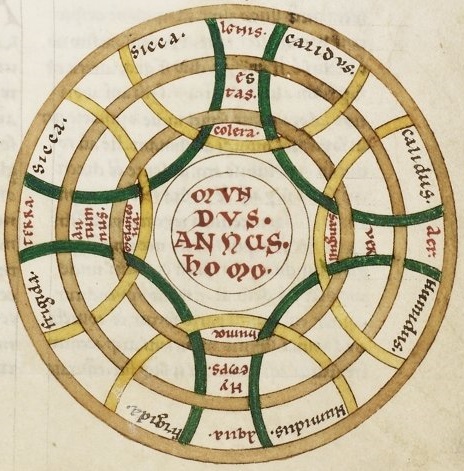 sicca.
Ignis.
calidus.
es
tas.
colera.
sicca.
calidus.
MUN
DUS.
ANNUS.
hOMO.
terra
au
tum
nus.
melanco
lia
sanguis
ver
aer
frigida.
humidus.
humor
Hy
emps.
frigida.
Aqua.
humidus.